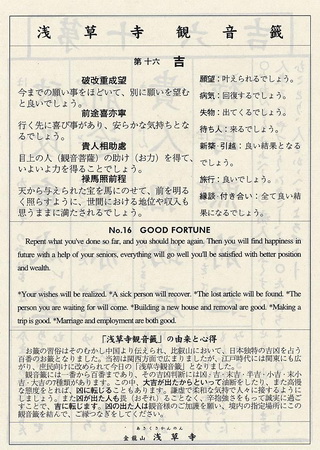 浅草寺観音籤
第十六 吉
破改重成望
今までの願い事をほどいて、別に願いを望む
と良いでしょう。
前途喜亦寧
行く先に喜び事があり、安らかな気持ちとな
るでしょう。
貴人相助處
目上の人（観音菩薩）の助け（お力）を得て、
いよいよ力を得ることでしょう。
禄馬照前程
天から与えられた宝を馬にのせて、前を明る
く照らすように、世間における地位や収入も
思うままに満たされるでしょう。
願望：叶えられるでしょう。
病気：回復するでしょう。
失物：出てくるでしょう。
待ち人：来るでしょう。
新築・引越：良い結果となる
でしょう。
旅行：良いでしょう。
縁談・付き合い：全て良い結
果になるでしょう。
No.16 GOOD FORTUNE
Repent what you've done so far, and you should hope again. Then you will find happiness in
future with a help of your seniors, everything will go well you'll be satisfied with better position
and wealth.
*Your wishes will be realized. *A sick person will recover. *The lost article will be found. *The
person you are waiting for will come. *Building a new house and removal are good. *Making a
trip is good. *Marriage and employment are both good.
「浅草寺観音籤」の由来と心得
おみくじの習俗はそのむかし中国より伝えられ、比叡山において、日本独特の吉凶を占う
百番のお籤となりました。当初は関西方面で広まりましたが、江戸時代には関東にも広
がり、庶民向けに改められて今日の「浅草寺観音籤」となりました。
観音籤には一番から百番まであり、その吉凶判断には凶・吉・末吉・半吉・小吉・末小
吉・大吉の7種類があります。この中、大吉が出たからといって油断をしたり、また高慢
な態度をとれば、凶に転じることもあります。謙虚で柔和な気持で人々に接するように
しましょう。また凶が出た人も畏（おそれ）ることなく、辛抱強さをもって誠実に過ご
すことで、吉に転じます。凶の出た人は観音様のご加護を願い、境内の指定場所にこの
観音籤を結んで、ご縁つなぎをしてください。
あさくさかんのん
金龍山 浅草寺